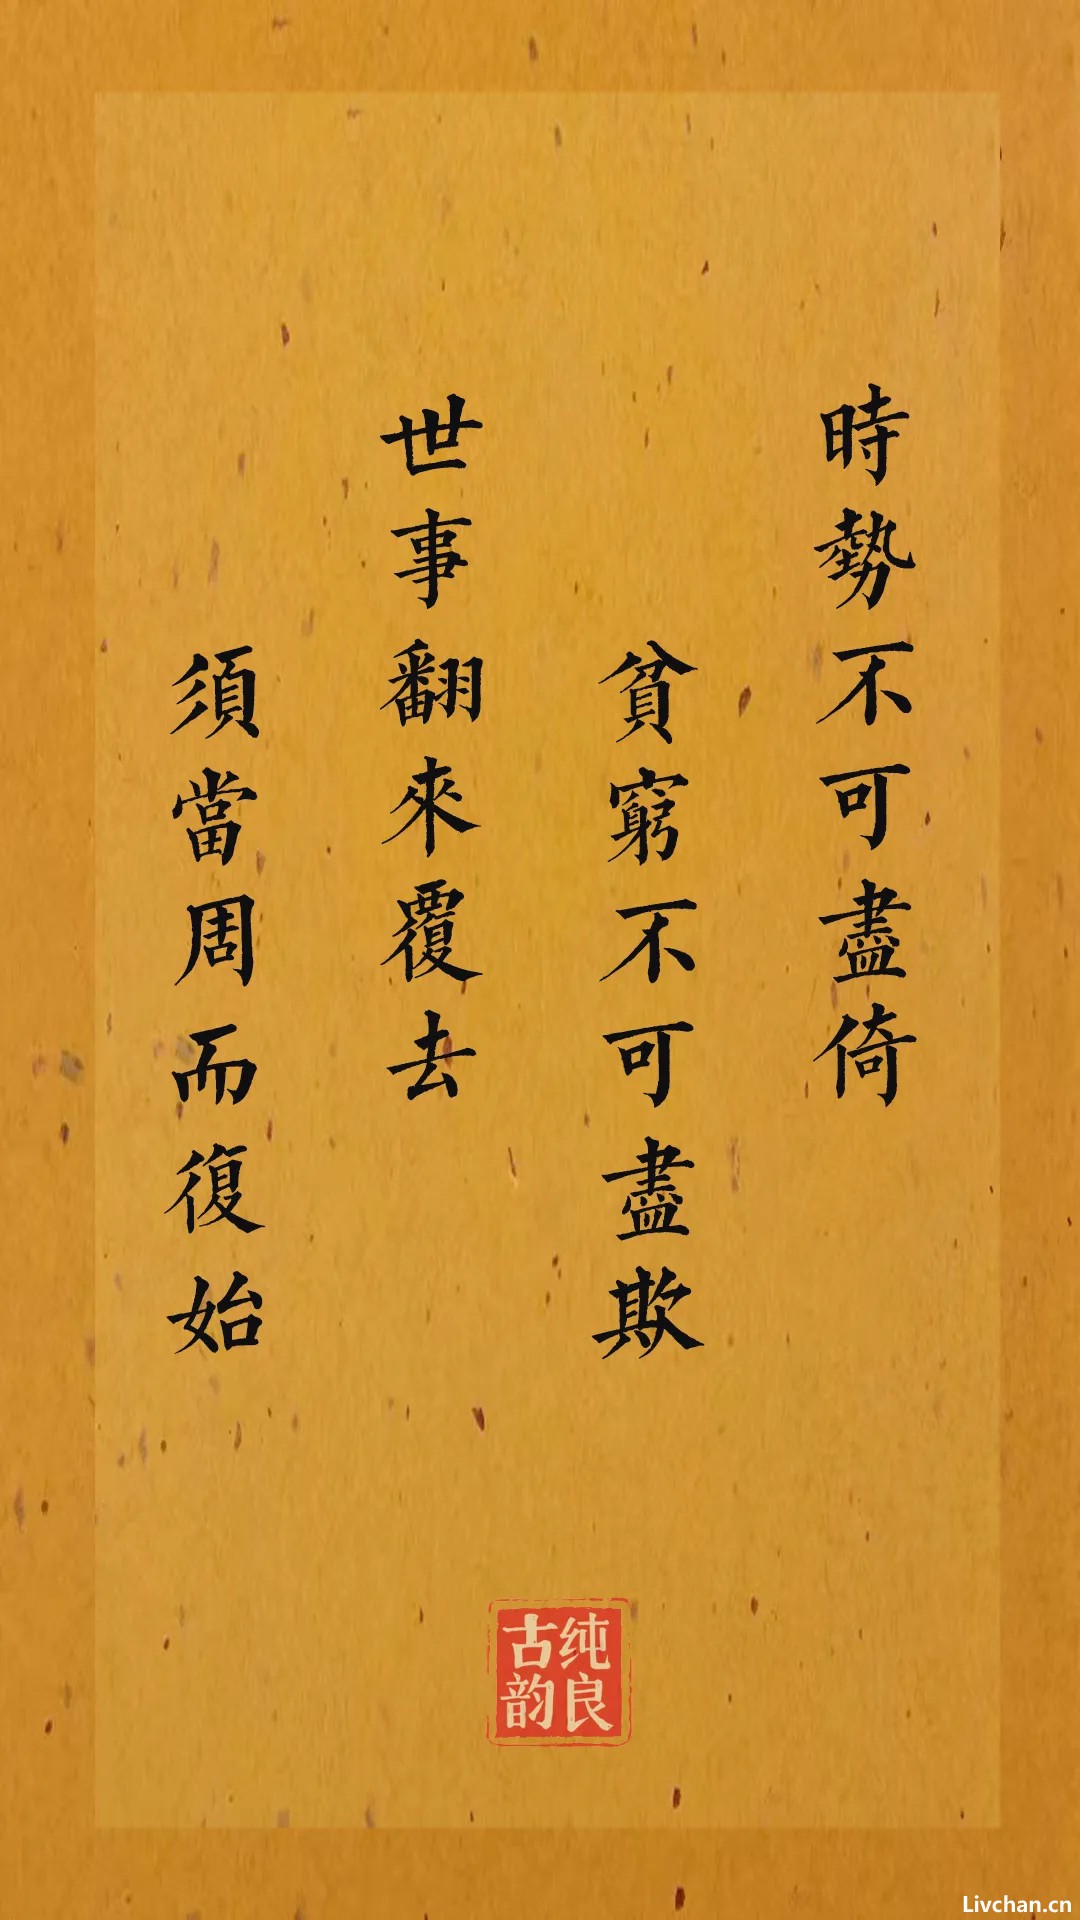 時勢不可盡倚
貧窮不可盡欺
世事翻來覆去
須當周而復始
纯良
古韵
Livchan.cn